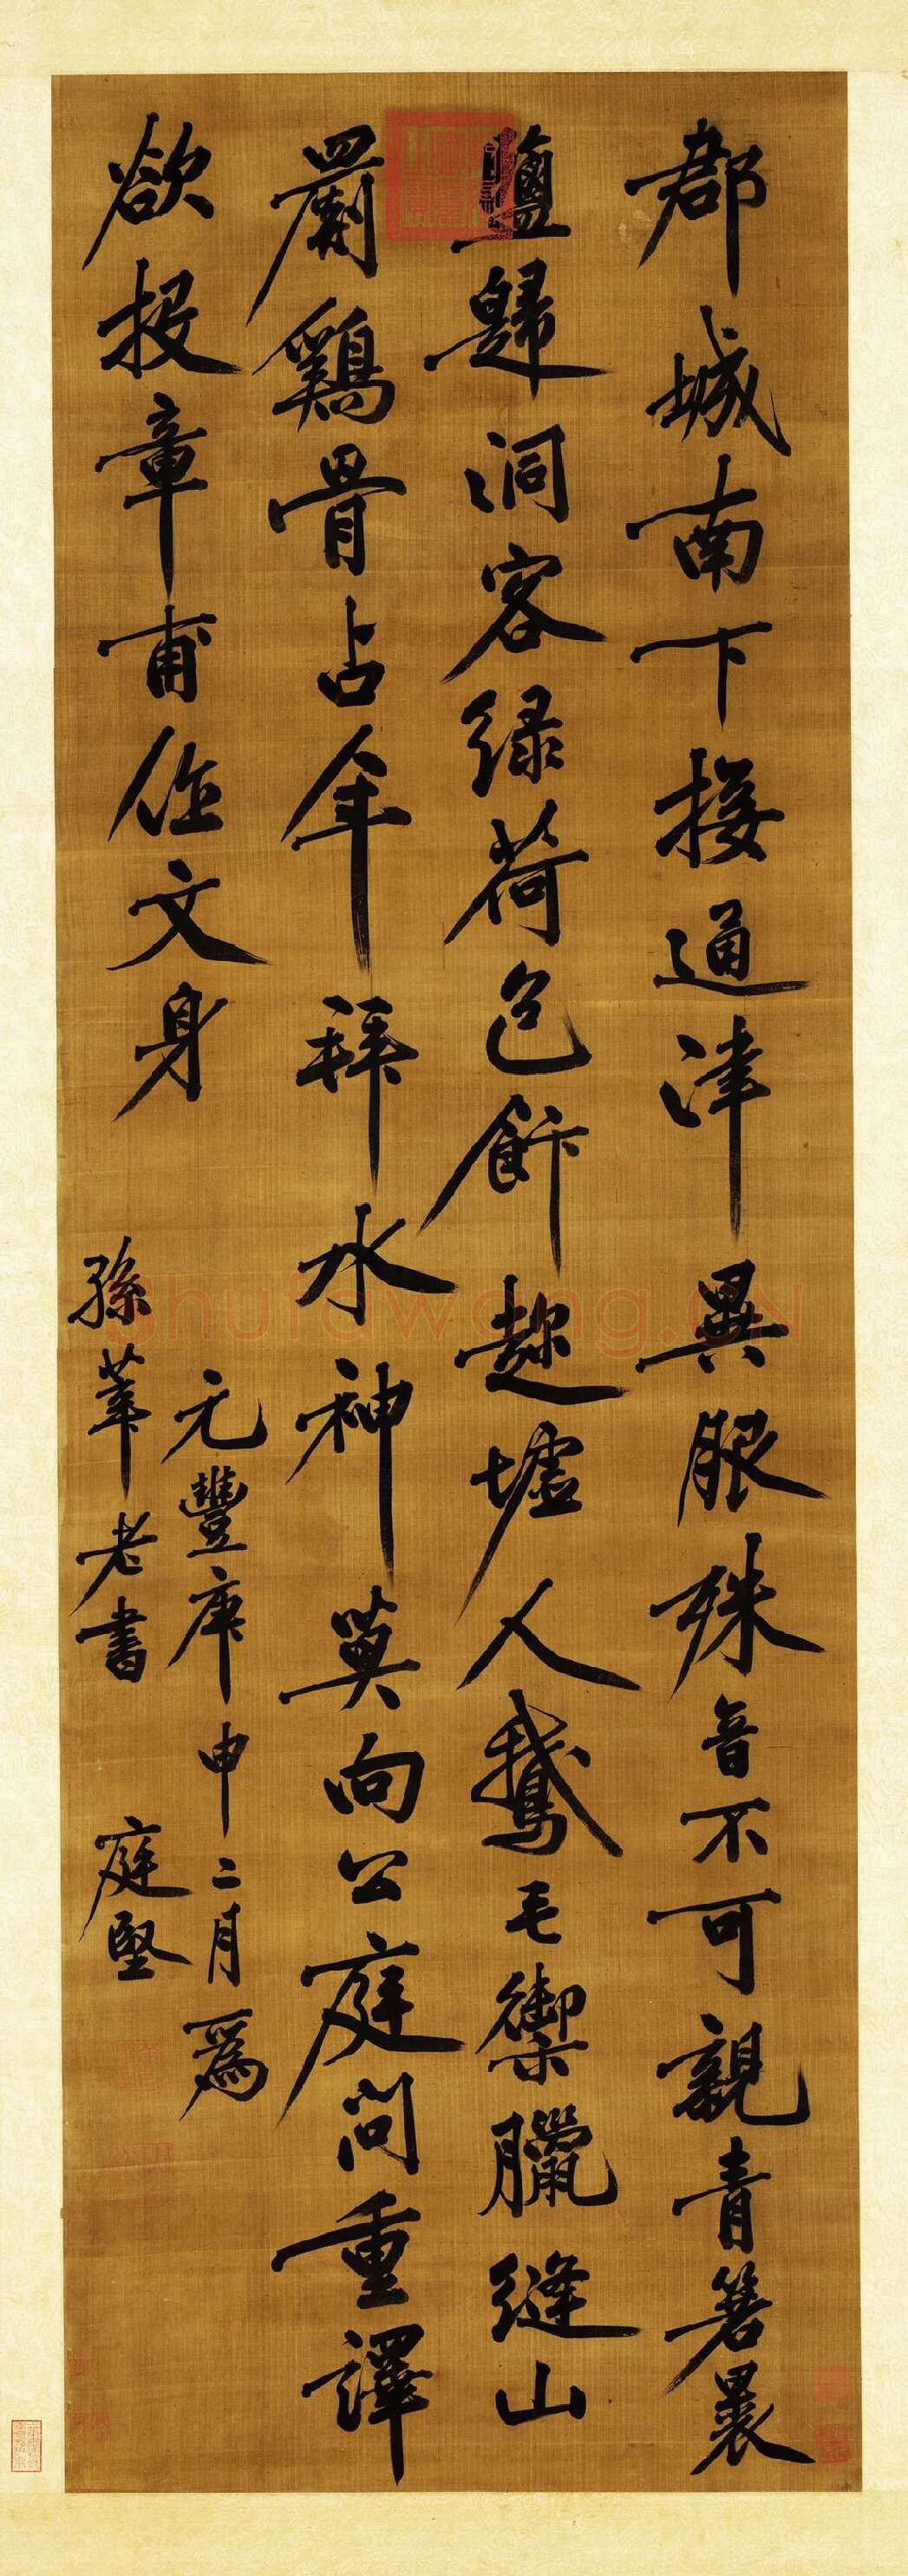 郡城南下接通津異服殊音不可親青箬裹
鹽歸洞客緑荷包飰趂墟人鵝毛禦臘縫山
罽鷄骨占年拜水神莫向公庭問重譯
欲投章甫作文身
元豐庚申二月爲
孫莘老書 庭堅
shufawang.CN